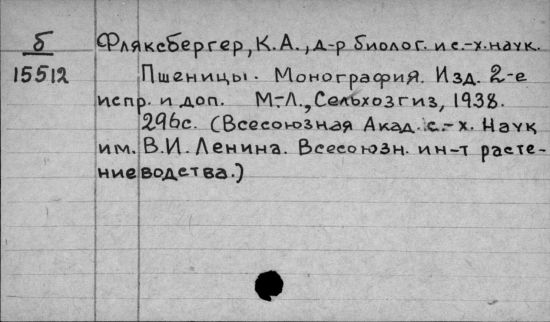 б Фляксбергер, К.А., д-р биолог. и с.-х. наук.
15512 Пшеницы. Монография. Изд. 2-е
испр. и доп. М.-Л., Сельхозгиз, 1938.
296с. (Всесоюзная Акад. с.-х. Наук
им. В.И. Ленина. Всесоюзн. ин-т расте-
ниеводства.)